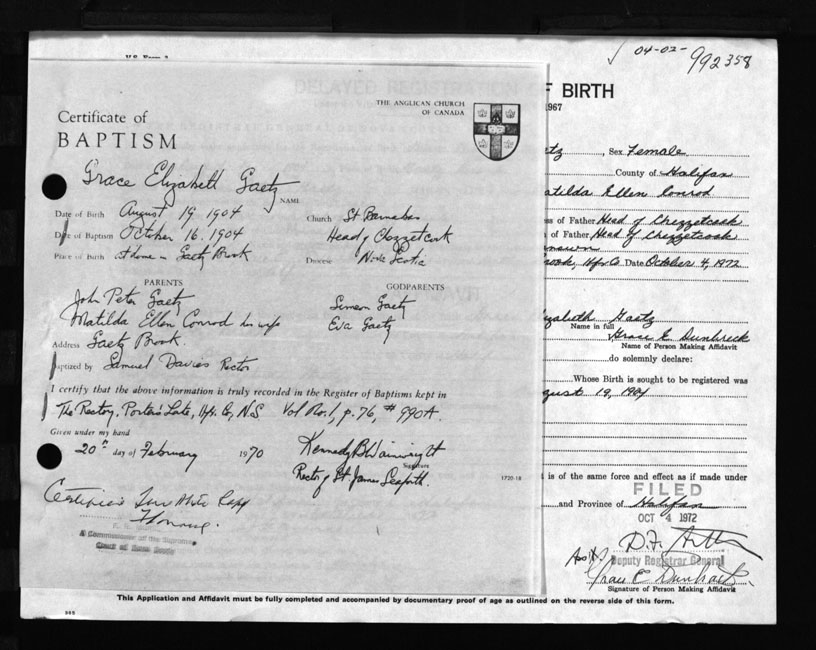 04-02-
992358
F BIRTH
1967
THE ANGLICAN CHURCH
OF CANADA
Certificate of
BAPTISM
Grace Elizabeth Gaetz
NAME
Date of Birth August 19, 1904
Church St Barnabas
Date of Baptism October 16, 1904
Head of Chezzetcook
Place of Birth at home in Gaetz Brook
Diocese Nova Scotia
PARENTS
GODPARENTS
John Peter Gaetz
Simeon Gaetz
Matilda Ellen Conrod his wife
Eva Gaetz
Address Gaetz Brook.
aptized by Samuel Davies Rector
I certify that the above information is truly recorded in the Register of Baptisms kept in
The Rectory, Porter's Lake, Hfx. Co, N.S Vol No. 1, p. 76, # 990A.
Given under my hand
20th day of February 1970
Kennedy B. Wainwright
Signature
Rector of St. James Seaforth.
1720-18
Certified True Copy
A Commissioner of the Supreme
Court of Nova Scotia
etz, Sex Female
County of Halifax
atilda Ellen Conrod
ss of Father Head of Chezzetcook
of Father Head of Chezzetcook
rook, Hfx Co. Date October 4, 1972
izabeth Gaetz
Name in full
Grace E Dunbrack
Name of Person Making Affidavit
do solemnly declare:
Whose Birth is sought to be registered was
gust 19, 1904
t is of the same force and effect as if made under
FILED
and Province of Halifax
OCT 4 1972
Ass't.
Deputy Registrar General
Grace E Dunbrack
Signature of Person Making Affidavit
This Application and Affidavit must be fully completed and accompanied by documentary proof of age as outlined on the reverse side of this form.